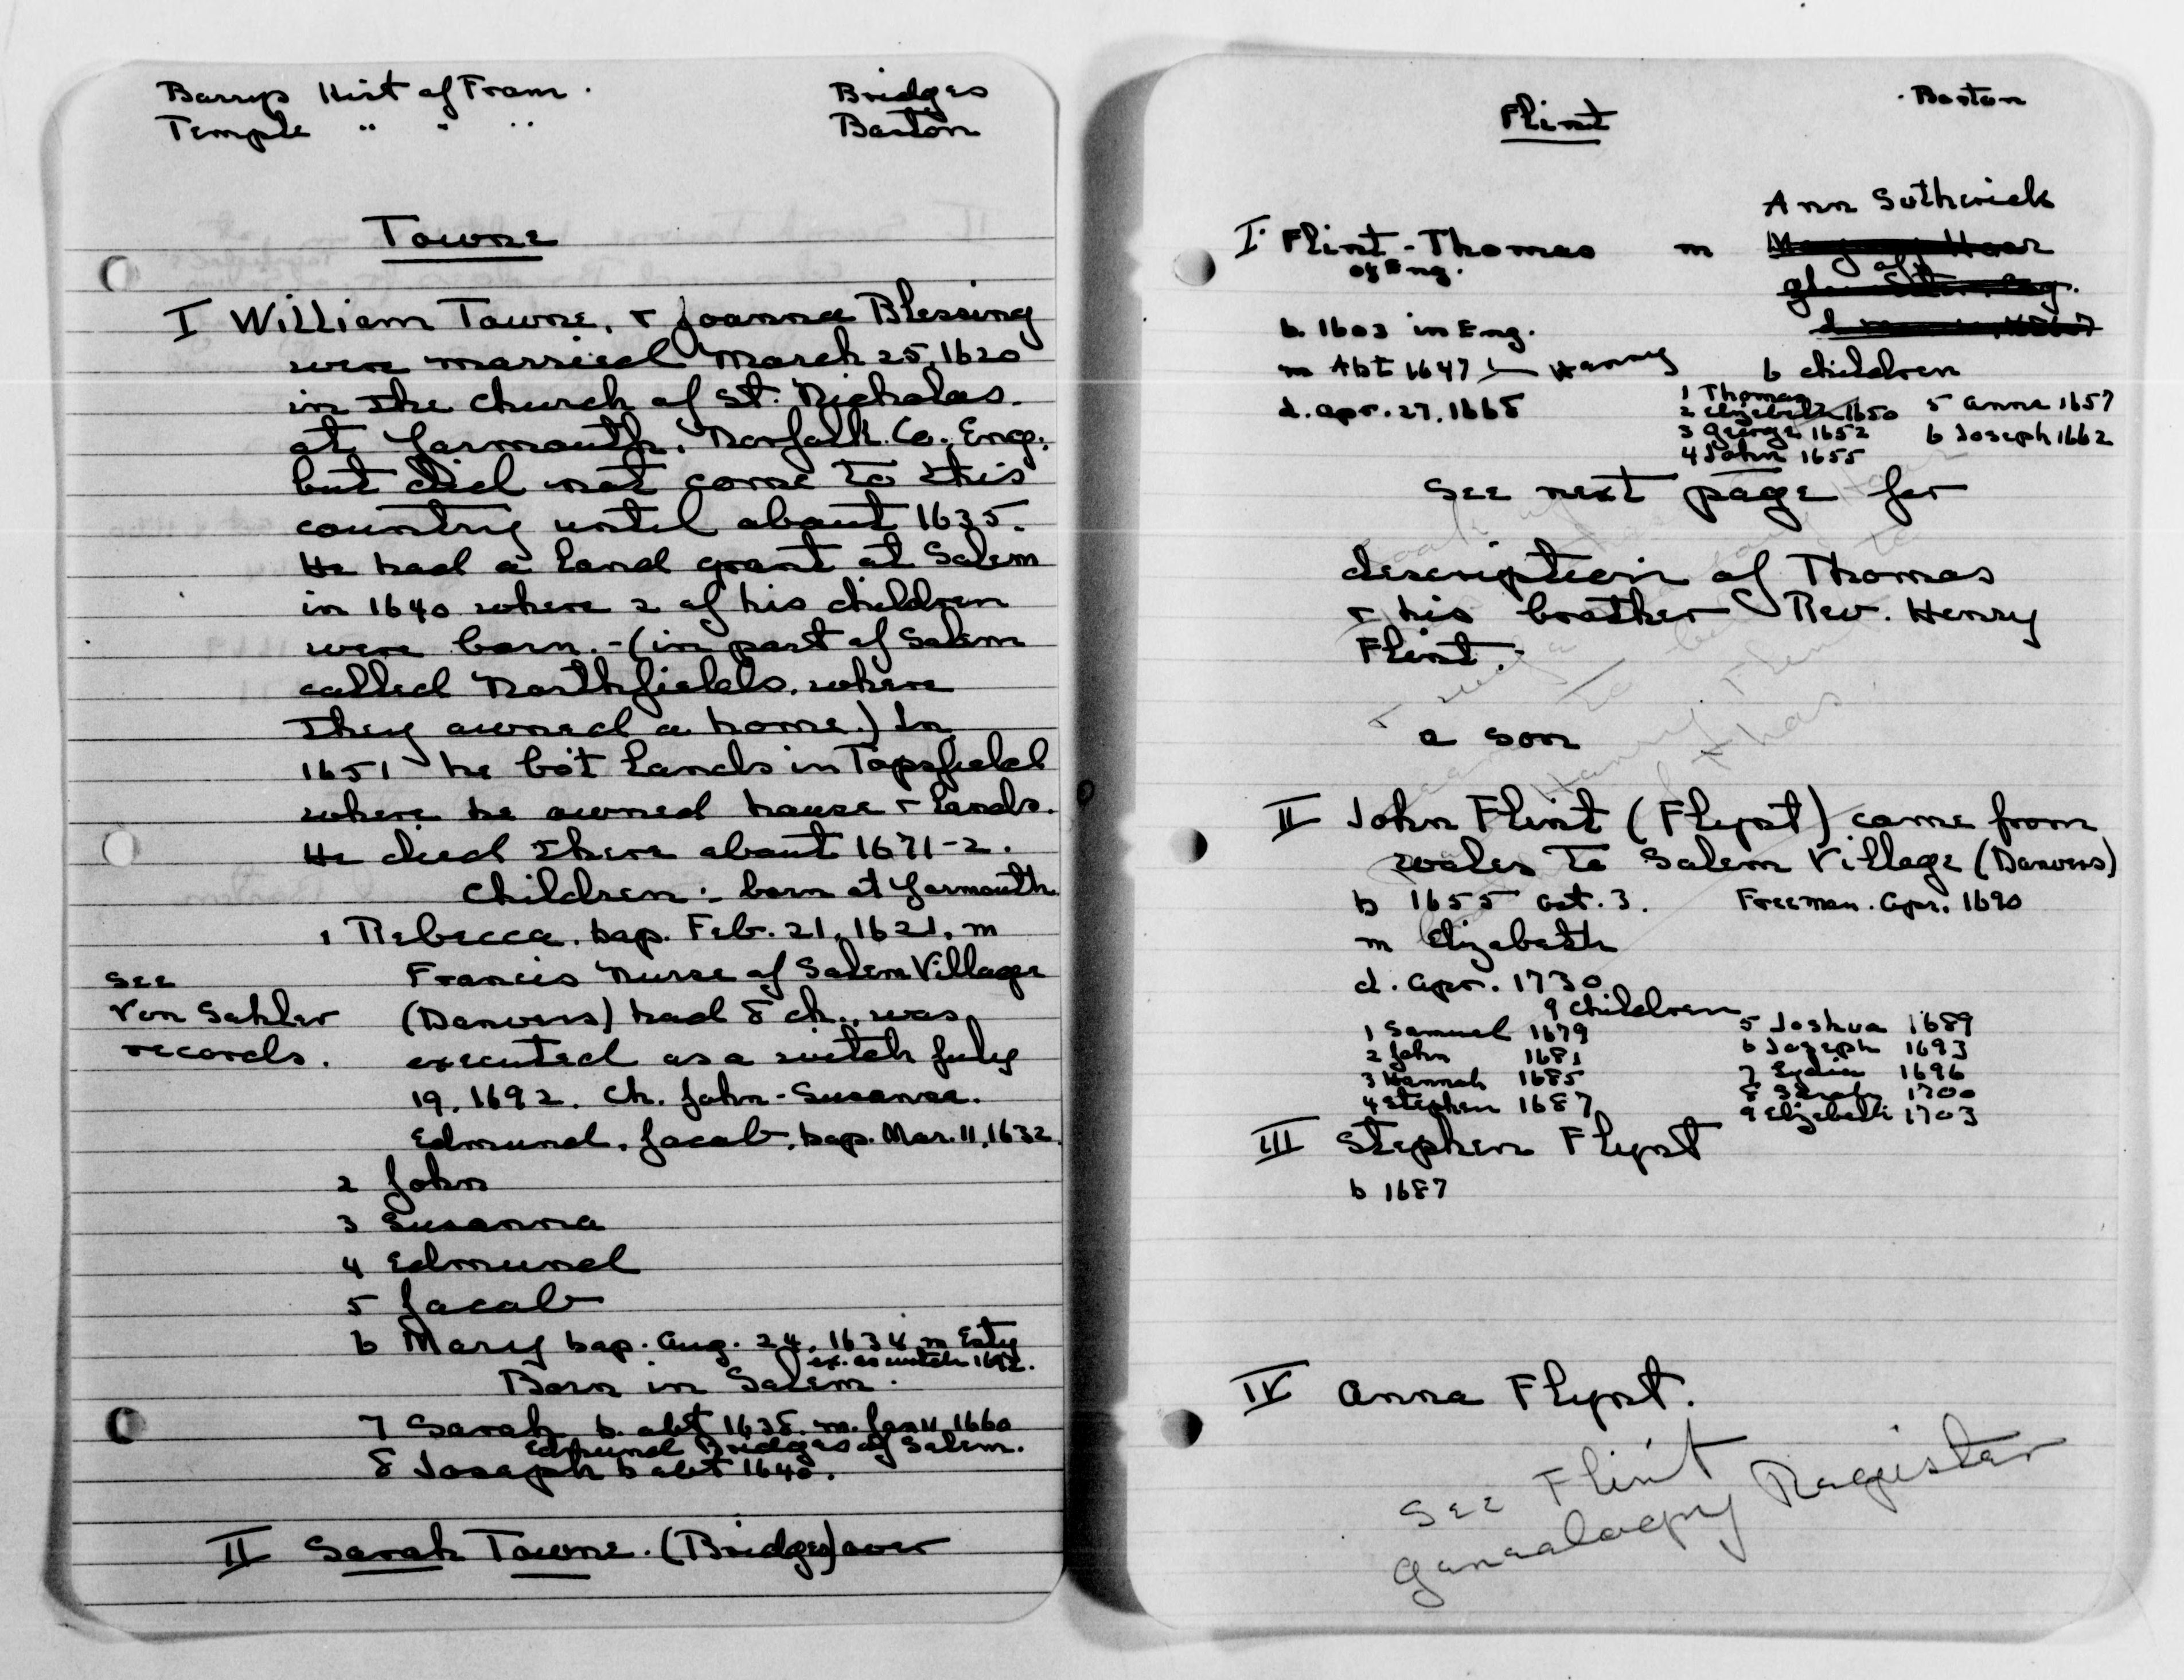 Barrys Hist of Fram.
Temple " " "
Bridges
Barton
Towne
I William Towne, & Joanna Blessing
were married March 25, 1620
in the church of St. Nicholas.
at Yarmouth, Norfolk. Co. Eng.
but did not come to this
country until about 1635.
He had a land grant at Salem
in 1640 where 2 of his children
were born. - (in part of Salem
called Northfields. where
they owned a home.) In
1651 he bo't lands in Topsfield
where he owned house & lands.
He died there about 1671-2.
Children: - born at Yarmouth.
1 Rebecca. bap. Feb. 21, 1621, m
Francis Nurse of Salem Village
(Danvers) had 8 ch., was
executed as a witch July
19, 1692. Ch. John - Susanna.
Edmund, Jacob, bap. Mar. 11, 1632.
see
Von Sahler
records.
2 John
3 Susanna
4 Edmund
5 Jacob
6 Mary bap. Aug. 24, 1634 m Esty
ex. as witch 1692.
Born in Salem.
7 Sarah b. abt 1638. m. Jan 11 1660
Edmund Bridges of Salem.
8 Joseph b abt 1640.
II Sarah Towne. (Bridges) over
Flint
Barton
Ann Sutherick
I. Flint - Thomas m
of Eng.
b. 1603 in Eng.
m Abt 1647
d. Apr. 27. 1668
6 children
1 Thomas
2 Elizabeth 1650
3 George 1652
4 John 1655
5 Anne 1657
6 Joseph 1662
See next page for
description of Thomas
& his brother Rev. Henry
Flint.
a son
II John Flint (Flynt) came from
Wales to Salem Village (Danvers)
b 1655 Oct. 3. Freeman. Apr. 1690
m Elizabeth
d. Apr. 1730
9 children
1 Samuel 1679
2 John 1681
3 Hannah 1685
4 Stephen 1687
5 Joshua 1689
6 Joseph 1693
7 Lydia 1696
8 Sarah 1700
9 Elizabeth 1703
III Stephen Flynt
b 1687
IV Anna Flynt.
See Flint
Genealogy Register